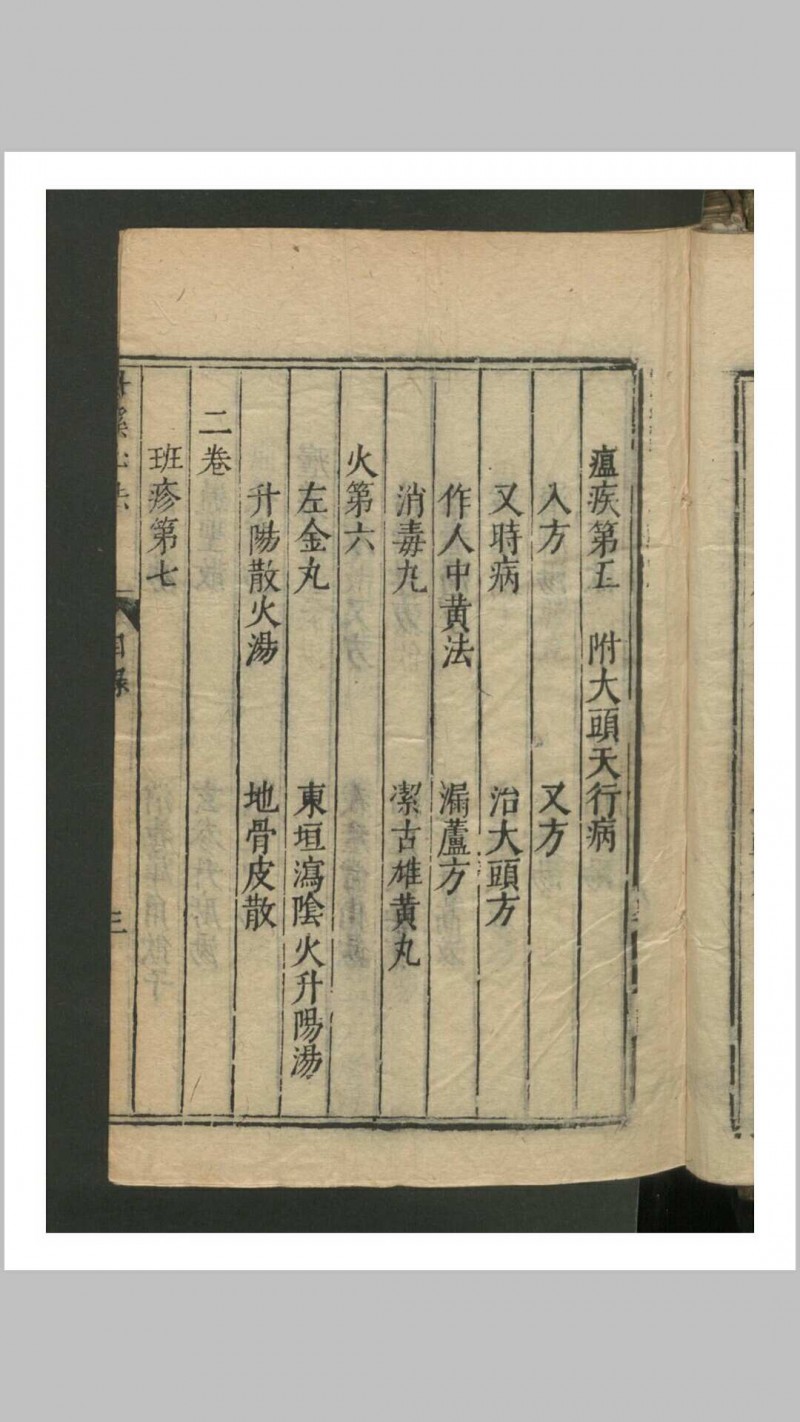 瘟疾第五　附大頭天行病
入方　又方
又時病　治大頭方
作人中黄法　漏蘆方
消毒丸　潔古雄黄丸
火第六
左金丸　東垣瀉隂火升陽湯
升陽散火湯　地骨皮散
二卷
班疹第七
目録
三